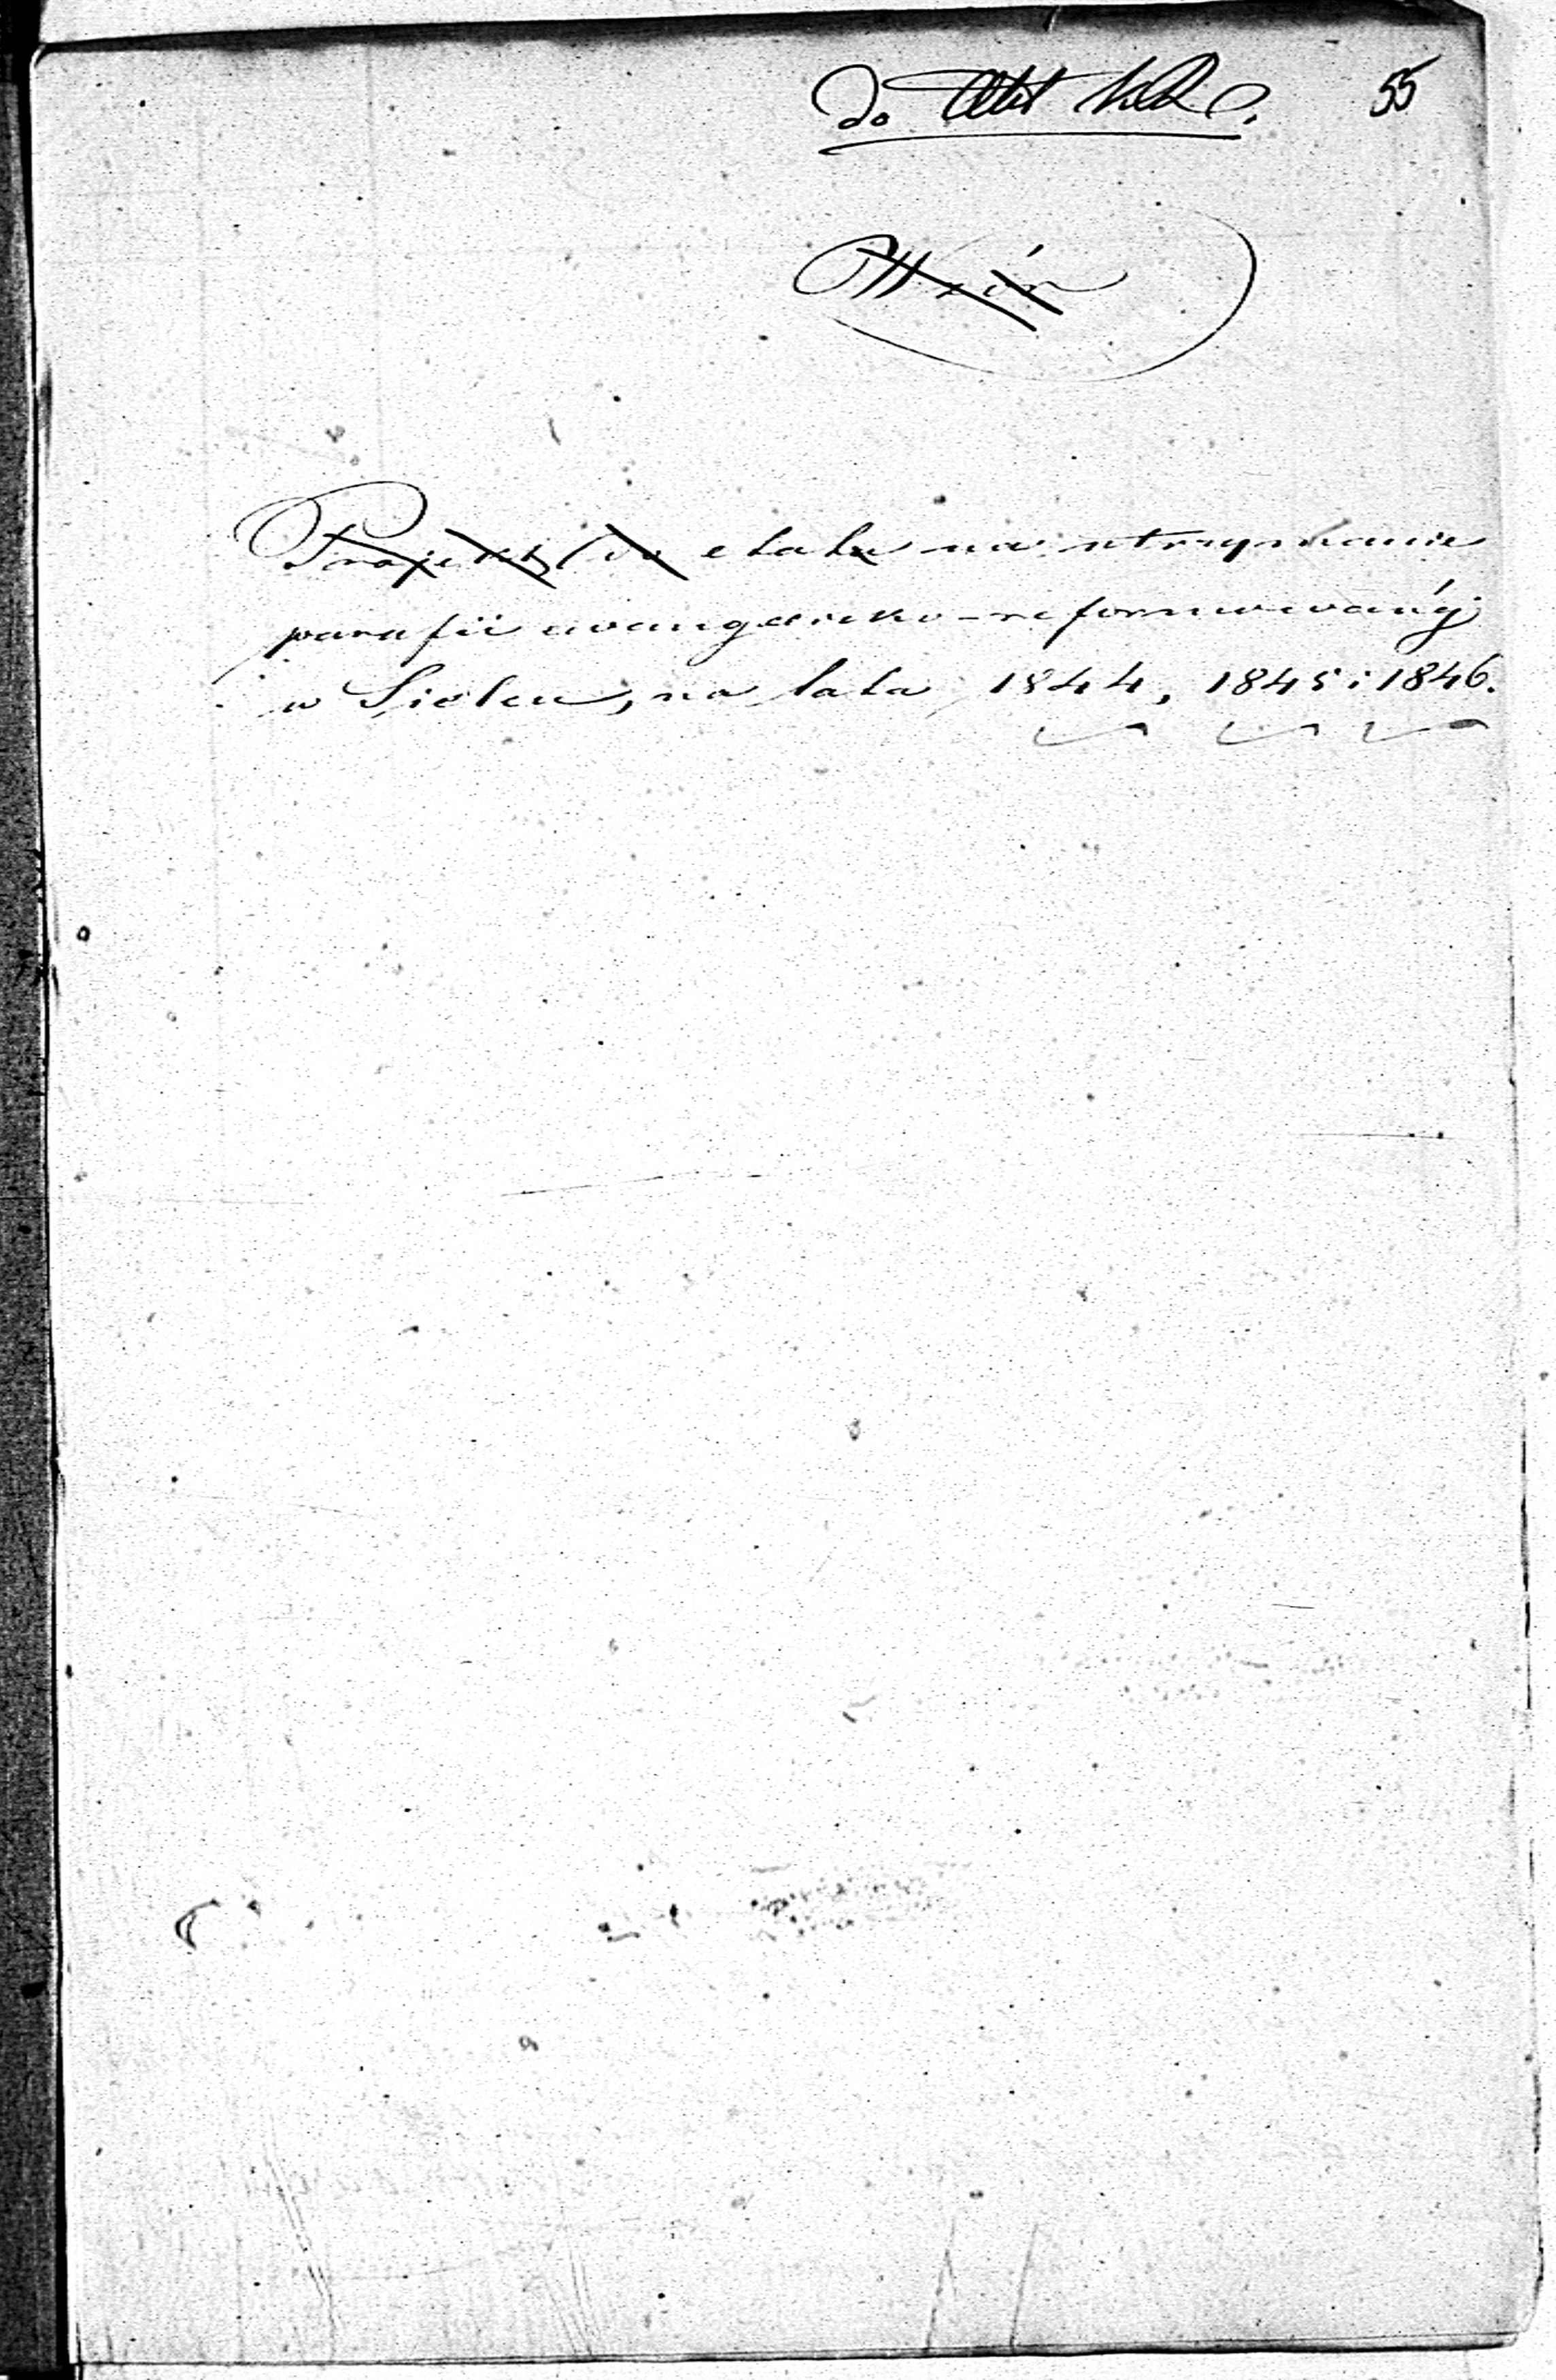 do Akt 55
Wzór
Projekt do etatu na utrzymanie
parafii ewangelicko-reformowanéj
w Sielcu, na lata 1844, 1845 i 1846.